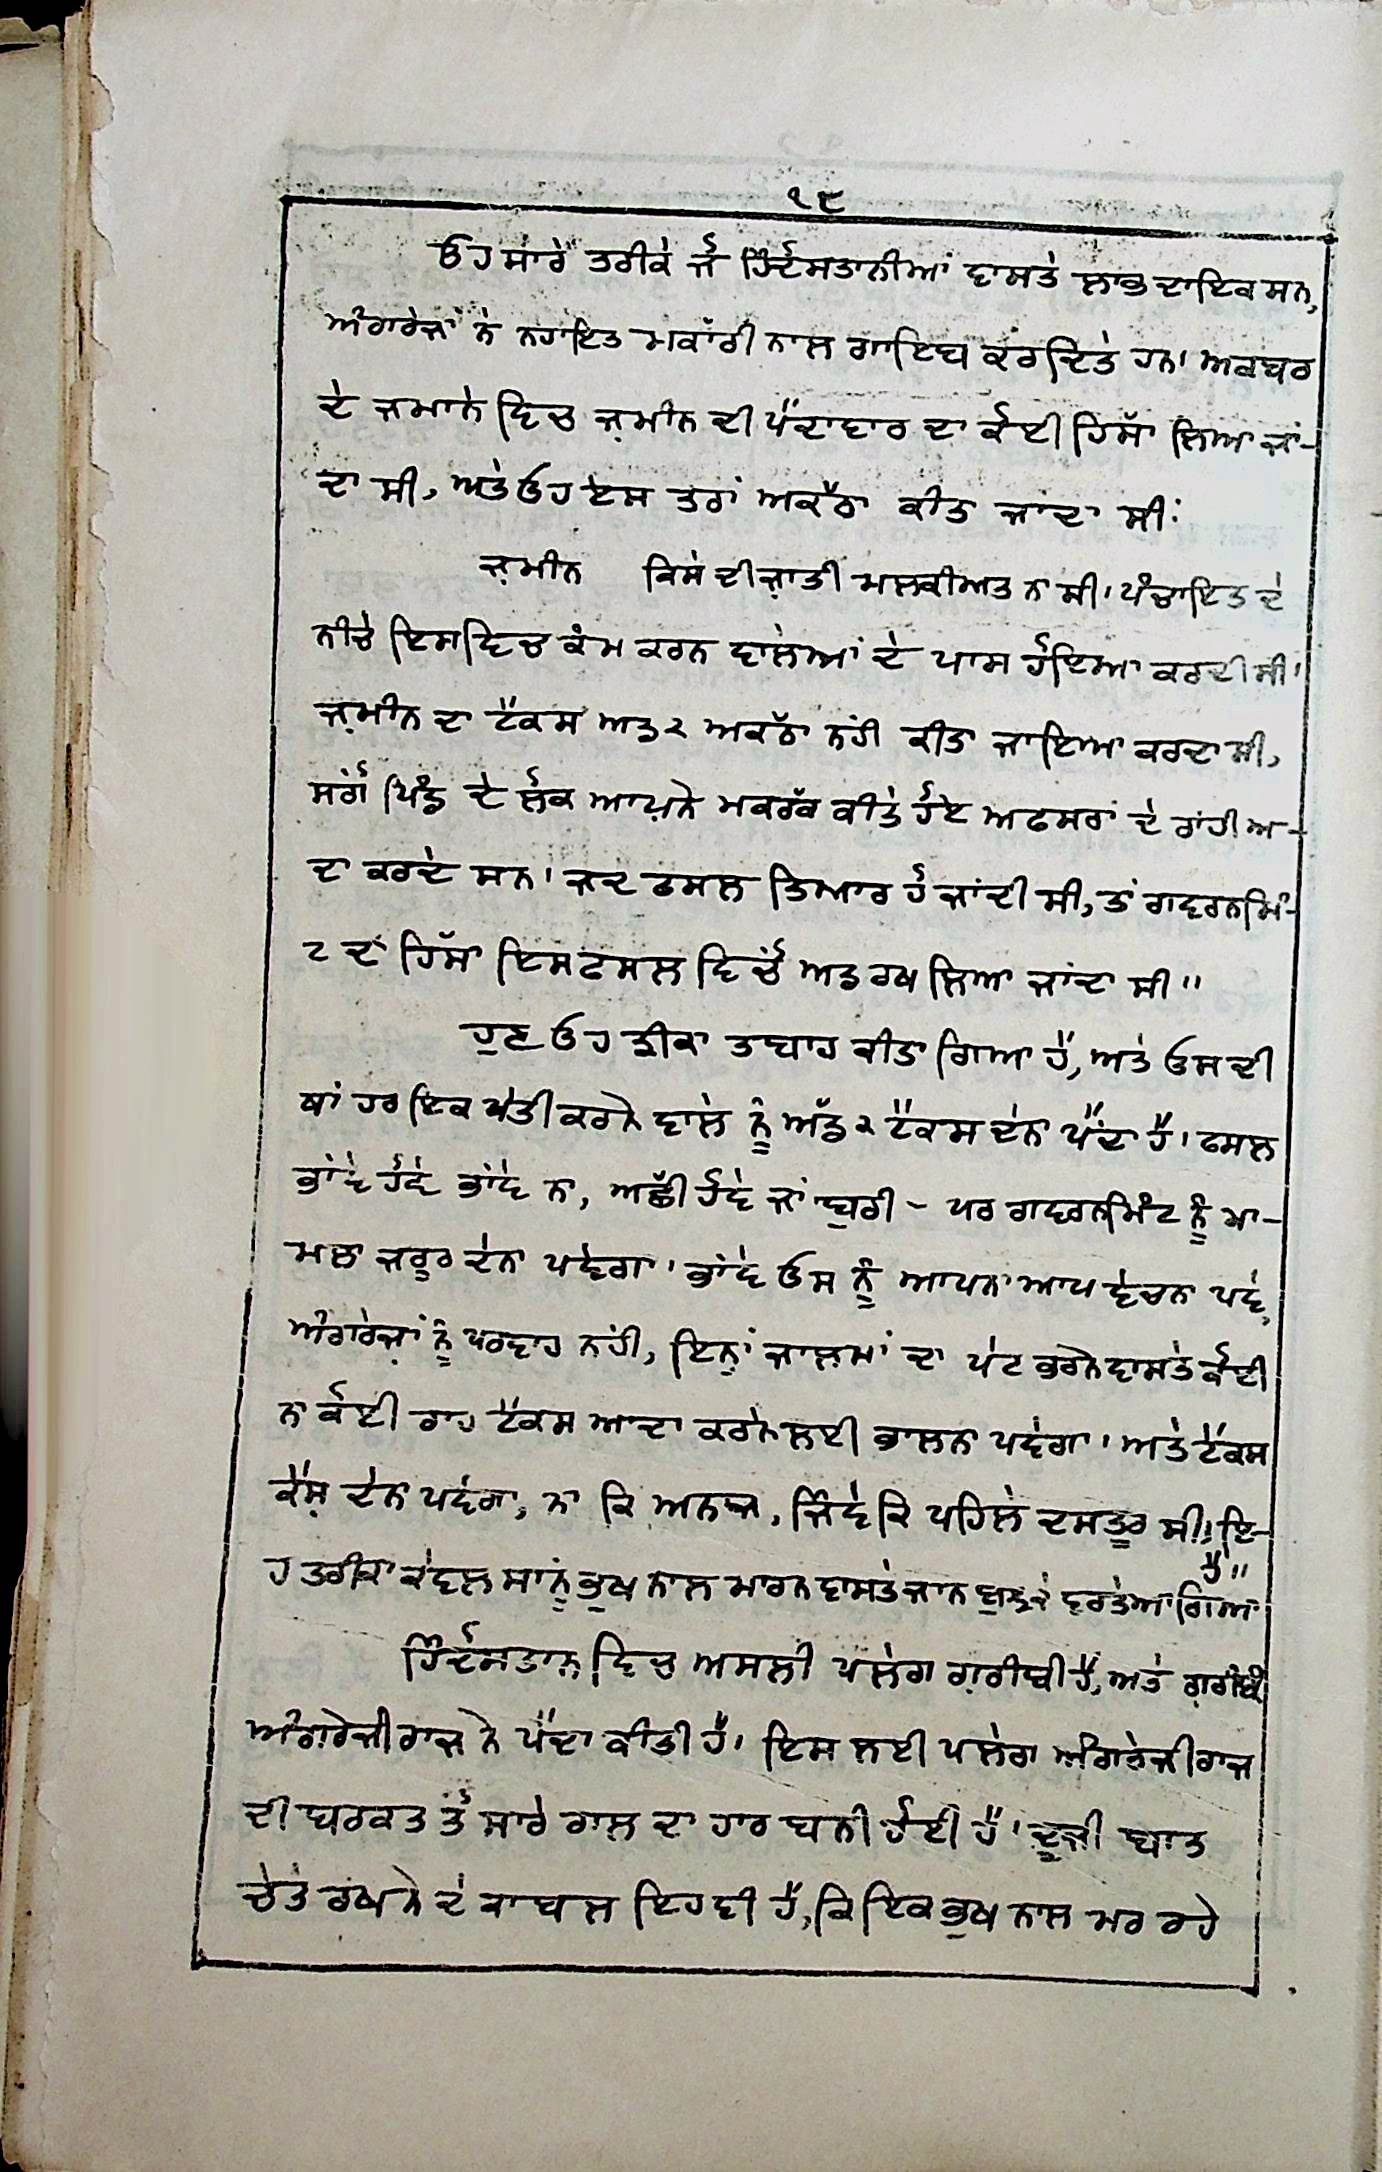 ੧੮
ਓਹ ਸਾਰੇ ਤਰੀਕੇ ਜੋ ਹਿੰਦੋਸਤਾਨੀਆਂ ਵਾਸਤੇ ਲਾਭ ਦਾਇਕ ਸਨ,
ਅੰਗਰੇਜ਼ਾਂ ਨੇ ਨਹਾਇਤ ਮਕਾੱਰੀ ਨਾਲ ਗਾਇਬ ਕਰ ਦਿਤੇ ਹਨ। ਅਕਬਰ
ਦੇ ਜ਼ਮਾਨੇ ਵਿਚ ਜ਼ਮੀਨ ਦੀ ਪੈਦਾਵਾਰ ਦਾ ਕੋਈ ਹਿਸੱਾ ਲਿਆ ਜਾਂ-
ਦਾ ਸੀ, ਅਤੇ ਓਹ ਏਸ ਤਰਾਂ ਅਕੱਠਾ ਕੀਤਾ ਜਾਂਦਾ ਸੀ:
ਜ਼ਮੀਨ ਕਿਸੇ ਦੀ ਜ਼ਾਤੀ ਮਾਲਕੀਅਤ ਨ ਸੀ। ਪੰਚਾਇਤ ਦੇ
ਨੀਚੇ ਇਸ ਵਿਚ ਕੰਮ ਕਰਨ ਵਾਲੇਆਂ ਦੇ ਪਾਸ ਹੋਇਆ ਕਰਦੀ ਸੀ।
ਜ਼ਮੀਨ ਦਾ ਟੈਕਸ ਅਡ੨ ਅਕਠੱਾ ਨਹੀਂ ਕੀਤਾ ਜਾਇਆ ਕਰਦਾ ਸੀ,
ਸਗੋਂ ਪਿੰਡ ਦੇ ਲੋਕ ਆਪ਼ਨੇ ਮਕਰੱਰ ਕੀਤੇ ਹੋਏ ਅਫਸਰਾਂ ਦੇ ਰਾਂਹੀ ਅ-
ਦਾ ਕਰਦੇ ਸਨ। ਜਦ ਫਸਲ ਤਿਆਰ ਹੋ ਜਾਂਦੀ ਸੀ, ਤਾਂ ਗਵਰਨਮਿੰ-
ਟ ਦਾ ਹਿਸੱਾ ਇਸ ਫਸਲ ਵਿਚੋਂ ਅਡ ਰਖ ਲਿਆ ਜਾਂਦਾ ਸੀ॥
ਹੁਣ ਓਹ ਤ੍ਰੀਕਾ ਤਬਾਹ ਕੀਤਾ ਗਿਆ ਹੈ, ਅਤੇ ਓਸ ਦੀ
ਥਾਂ ਹਰ ਇਕ ਖੇਤੀ ਕਰਨੇ ਵਾਲੇ ਨੂੰ ਅੱਡ੨ ਟੈਕਸ ਦੇਨਾ ਪੈਂਦਾ ਹੈ। ਫਸਲ
ਭਾਂਵੇ ਹੋਵੇ ਭਾਂਵੇ ਨਾ, ਅਛੱੀ ਹੋਵੇ ਜਾਂ ਬੁਰੀ - ਪਰ ਗਵਰਨਮਿੰਟ ਨੂੰ ਮਾ-
ਮਲਾ ਜ਼ਰੂਰ ਦੇਨਾ ਪਵੇਗਾ। ਭਾਂਵੇ ਓਸ ਨੂੰ ਆਪਨਾ ਆਪ ਵੇਚਨਾ ਪਵੇ,
ਅੰਗਰੇਜ਼ਾਂ ਨੂੰ ਪਰਵਾਹ ਨਹੀਂ, ਇਨ੍ਹਾਂ ਜਾਲਮਾਂ ਦਾ ਪੇਟ ਭਰਨੇ ਵਾਸਤੇ ਕੋਈ
ਨਾ ਕੋਈ ਰਾਹ ਟੈਕਸ ਆਦਾ ਕਰਨੇ ਲਈ ਭਾਲਨਾ ਪਵੇਗਾ। ਅਤੇ ਟੈਕਸ
ਕੈਸ਼ ਦੇਨਾ ਪਵੇਗਾ, ਨਾ ਕਿ ਅਨਾਜ, ਜਿੰਵੇ ਕਿ ਪਹਿਲੇ ਦਸਤੂਰ ਸੀ। ਇ-
ਹ ਤਰੀਕਾ ਕੇਵਲ ਸਾਨੂੰ ਭੁਖ ਨਾਲ ਮਾਰਨ ਵਾਸਤੇ ਜਾਨ ਬੁਝਕੇ ਵਰਤੇਆ ਗਿਆ
ਹੈ॥
ਹਿੰਦੋਸਤਾਨ ਵਿਚ ਅਸਲੀ ਪਲੇਗ ਗ਼ਰੀਬੀ ਹੈ, ਅਤੇ ਗ਼ਰੀਬੀ
ਅੰਗਰੇਜੀ ਰਾਜ ਨੇ ਪੈਦਾ ਕੀਤੀ ਹੈ। ਇਸ ਲਈ ਪਲੇਗ ਅੰਗਰੇਜੀ ਰਾਜ
ਦੀ ਬਰਕਤ ਤੋਂ ਸਾਰੇ ਗਲ ਦਾ ਹਾਰ ਬਨੀ ਹੋਈ ਹੈ। ਦੂਜੀ ਬਾਤ
ਚੇਤੇ ਰਖਨੇ ਦੇ ਕਾਬਲ ਇਹ ਵੀ ਹੈ, ਕਿ ਇਕ ਭੁਖ ਨਾਲ ਮਰ ਰਹੇ